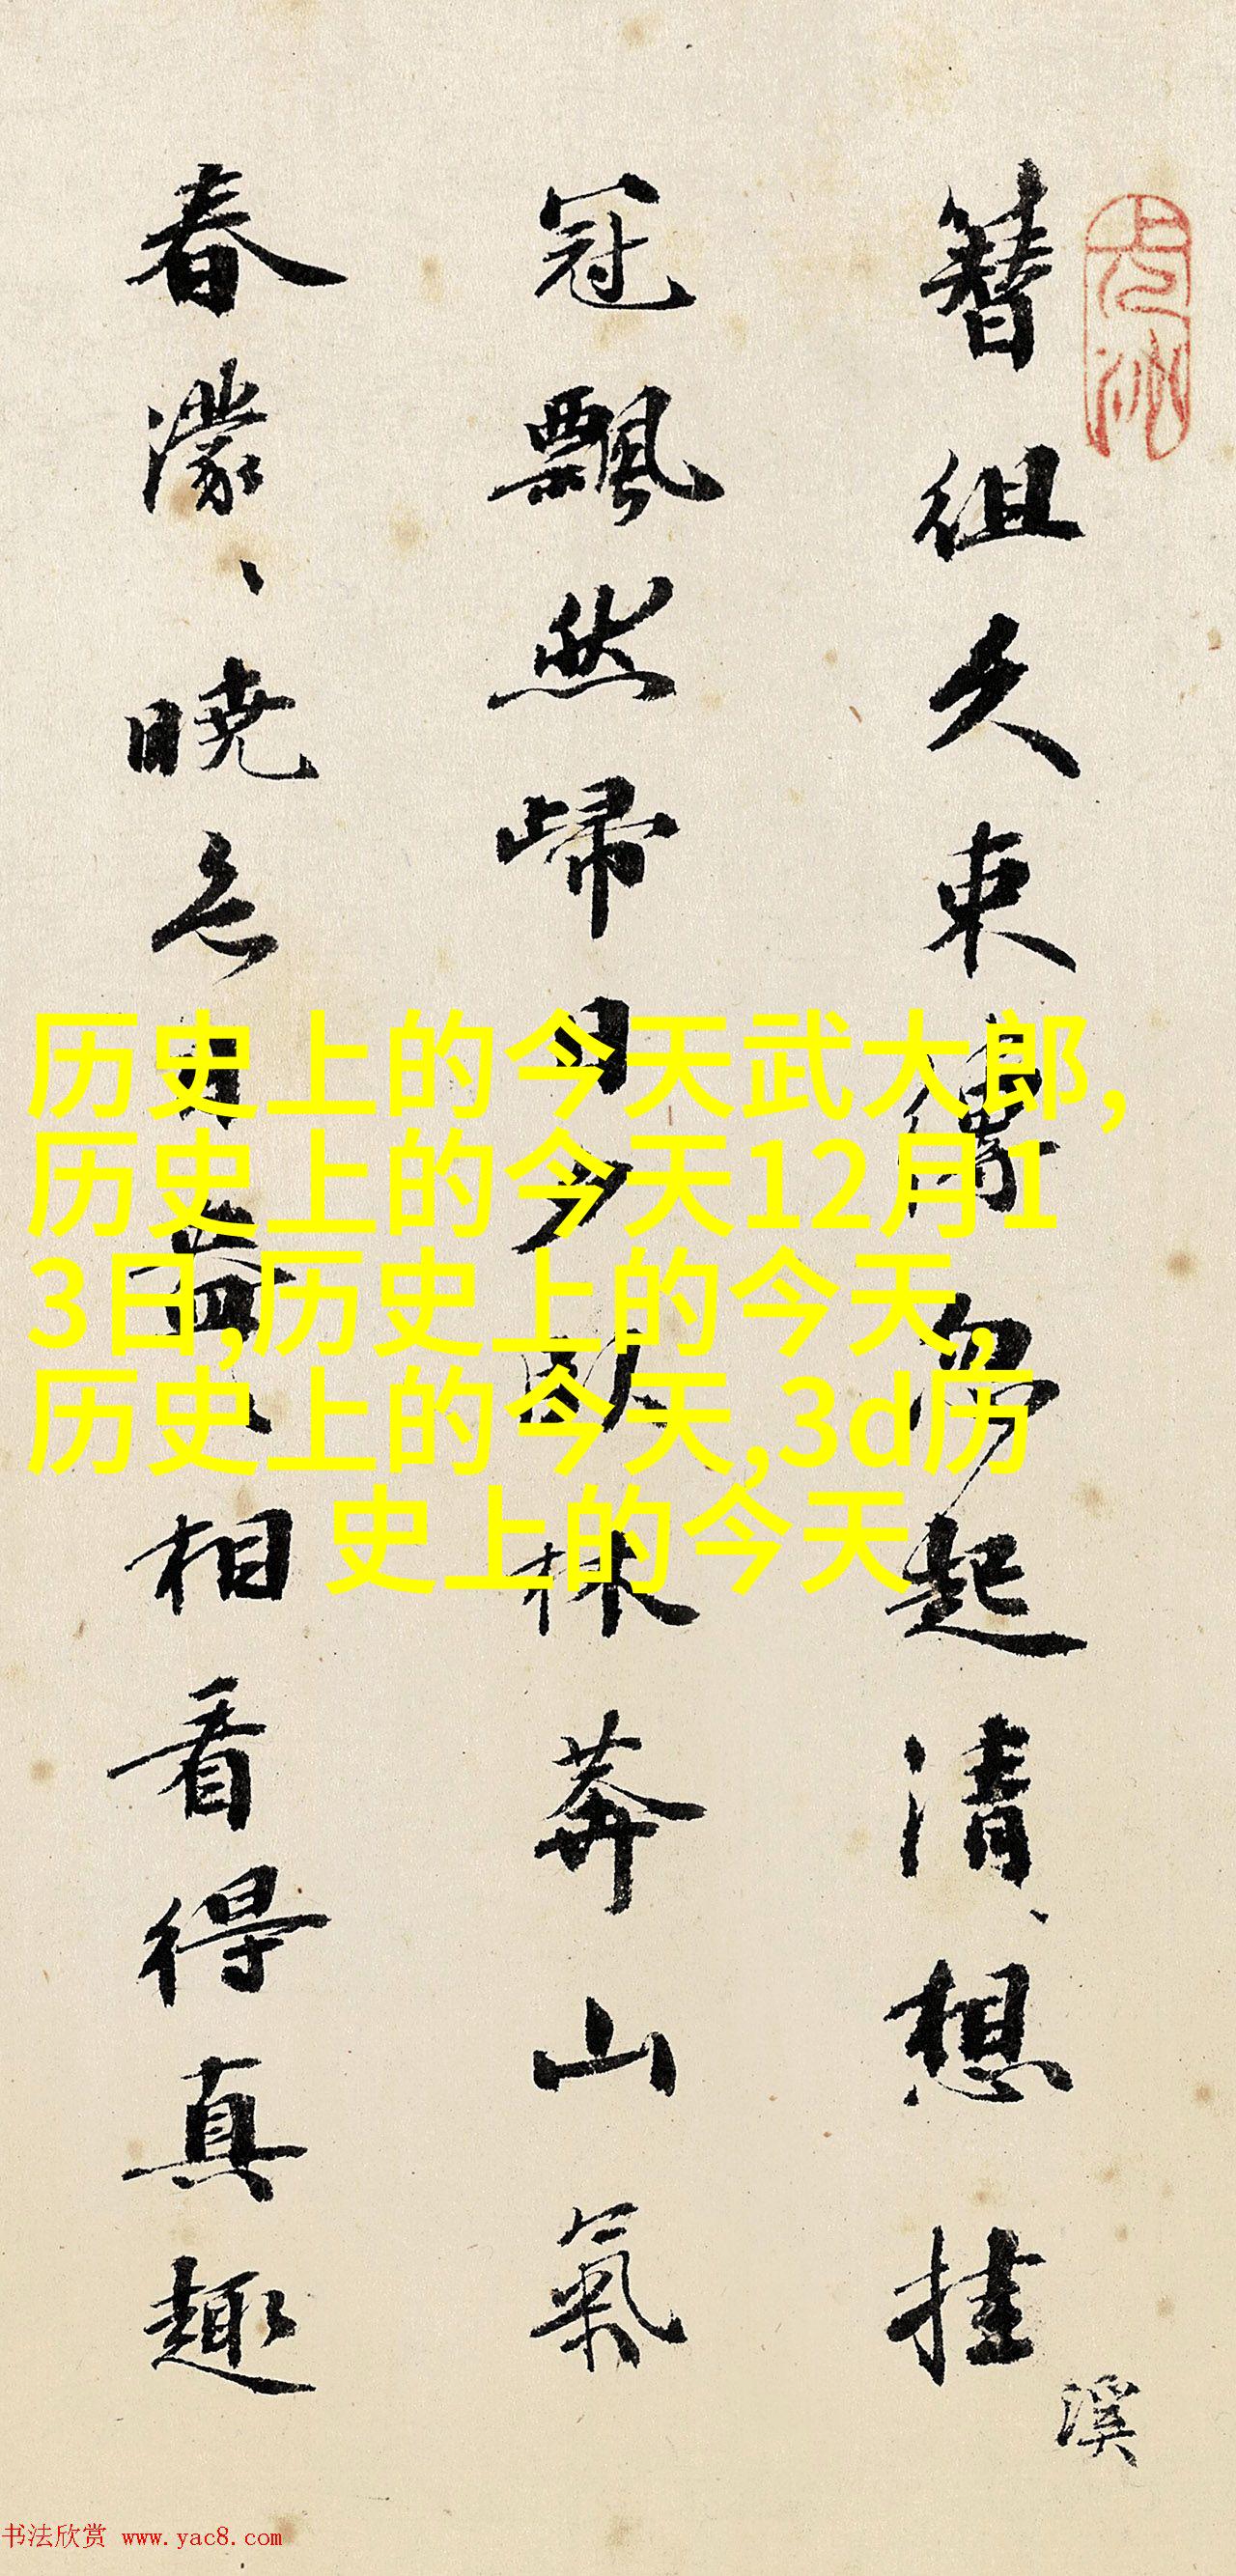 簪組久束忽起清、想挂
溪
冠飄然歸日夕臥林莽山氣
春濛、曉相看得真趣
历史上的今天武大郎,
历史上的今天12月1
3日,历史上的今天,
历史上的今天,3d历
史上的今天
书法欣赏 www.yac8.com